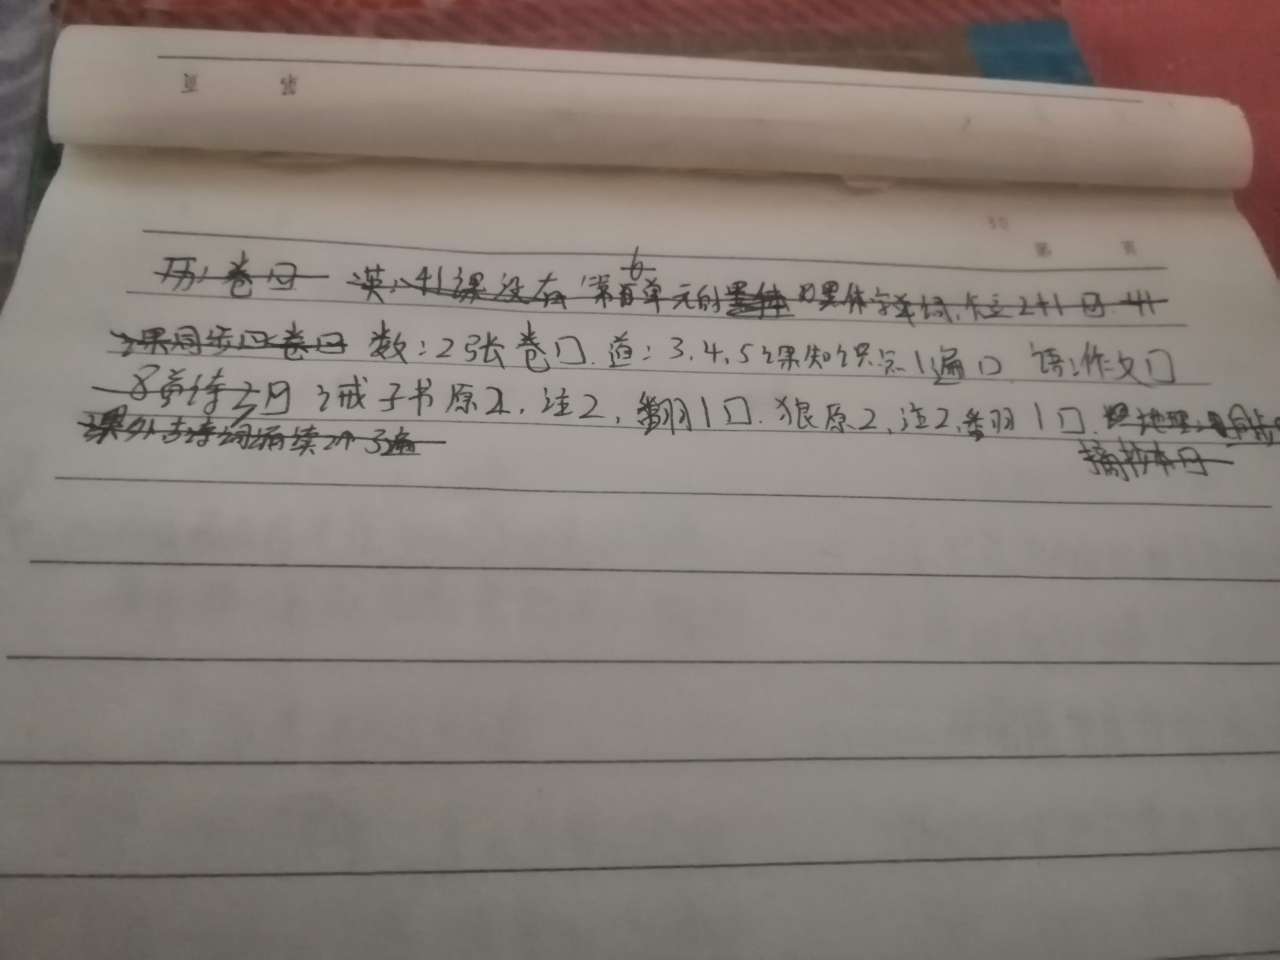 第 页
历:卷口 英:41课没有 第6单元的 黑体字单词
课同步口卷口 数:2张卷口.道:3.4.5课知识点1遍口 语:作文口
8首诗 诫子书原2,注2,翻1口.狼原2,注2,翻1口.地理:同步
课外古诗词诵读2个3遍 摘抄本口